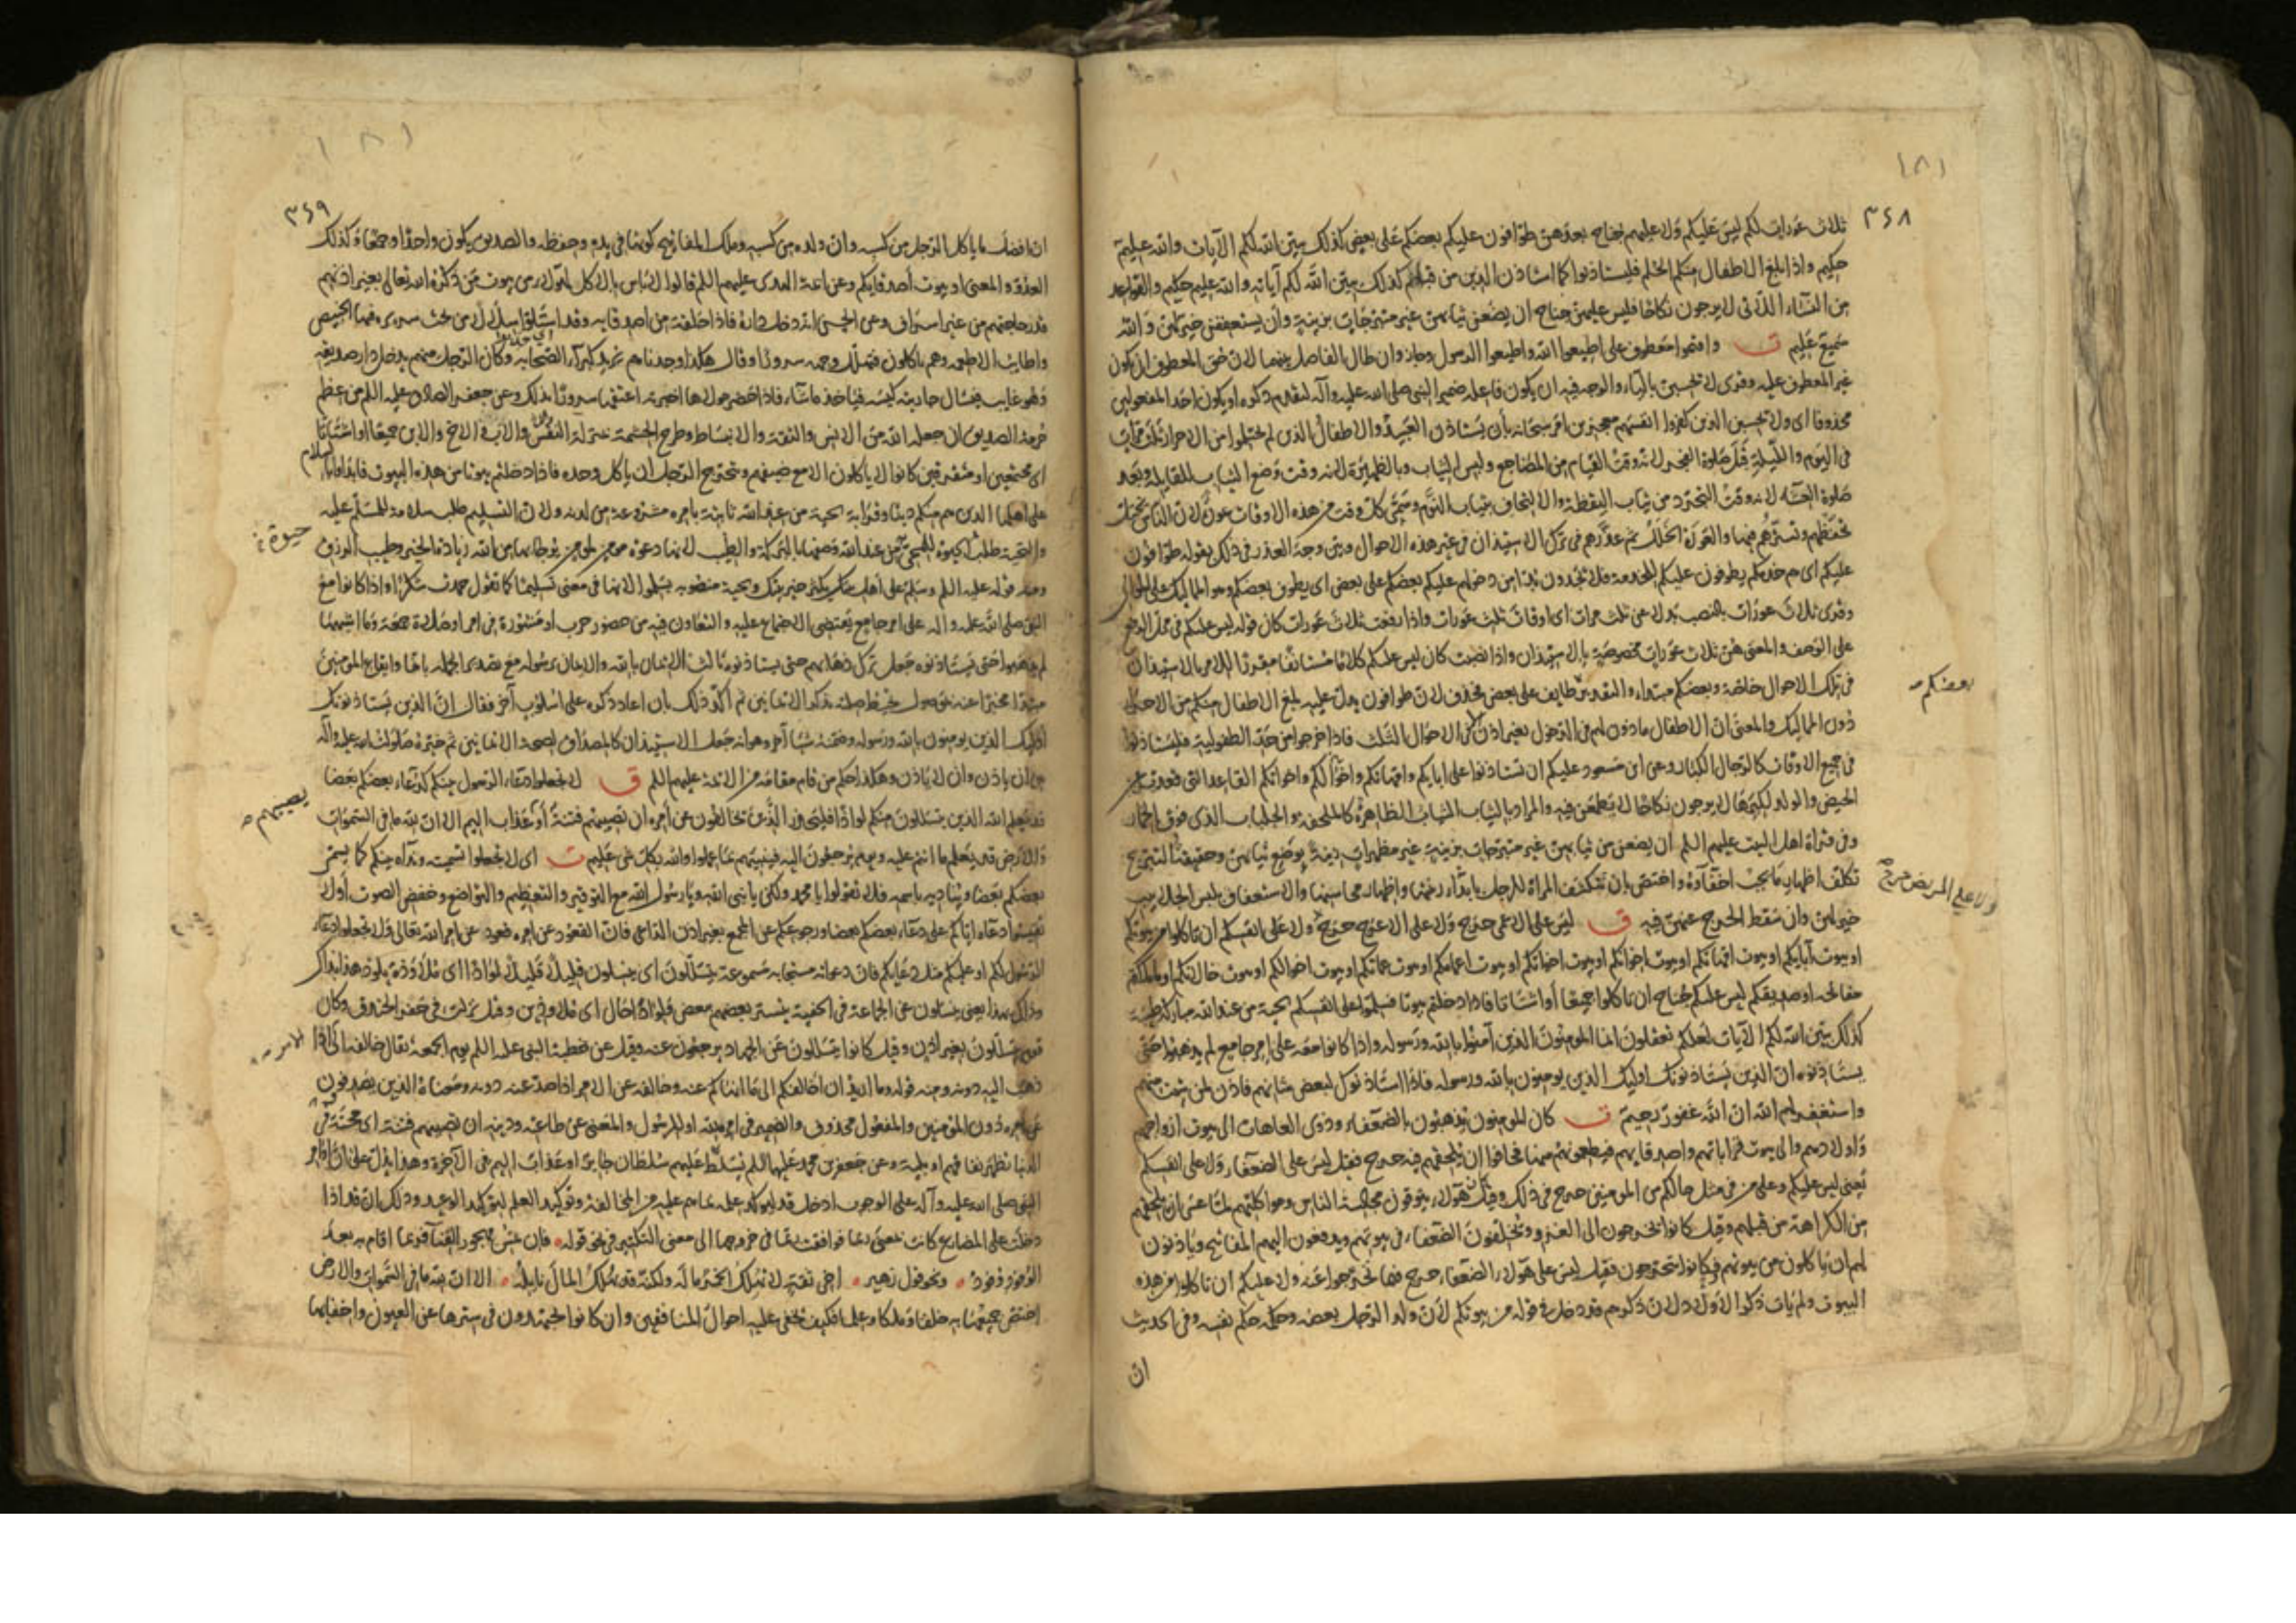 ١٨١
٣٤٨
ثلاث عورات لكم ليس عليكم ولا عليهم جناح بعدهن طوافون عليكم بعضكم على بعض كذلك يبين الله لكم الآيات والله عليم
حكيم واذا بلغ الاطفال منكم الحلم فليستاذنوا كما استاذن الذين من قبلهم كذلك يبين الله لكم آياته والله عليم حكيم والقواعد
من النساء اللاتى لا يرجون نكاحا فليس عليهن جناح ان يضعن ثيابهن غير متبرجات بزينة وأن يستعففن خير لهن والله
سميع عليم ت واقيموا معطوف على اطيعوا الله واطيعوا الرسول وجاز وان طال الفاصل بينهما لان حق المعطوف ان يكون
غير المعطوف عليه وقرى لا يحسبن بالياء والوجه فيه ان يكون فاعله ضمير النبى صلى الله عليه وآله لتقدم ذكره او يكون احد المفعولين
محذوفا اى ولا يحسبن الذين كفروا انفسهم معجزين امر سبحانه بأن يستاذن العبيد والاطفال الذين لم يحتلموا من الاحرار ثلاث مرات
فى اليوم والليلة قبل صلوة الفجر لانه وقت القيام من المضاجع ولبس الثياب وبالظهيرة لانه وقت وضع الثياب للقايلة وبعد
صلوة العشاء لانه وقت التجرد من ثياب اليقظة والالتحاف بثياب النوم وسمى كل وقت من هذه الاوقات عورة لان الناس يختل
تحفظهم وتسترهم فيها والعورة الخلل ثم عذرهم فى ترك الاستيذان فى غير هذه الاحوال وبين وجه العذر فى ذلك بقوله طوافون
عليكم اى هم خدمكم يطوفون عليكم للخدمة فلا تجدون بدا من دخولهم عليكم بعضكم على بعض اى يطوف بعضكم وهو المماليك على الموالى
وقرى ثلاث عورات بالنصب بدلا عن ثلث مرات اى اوقات ثلث عورات واذا رفعت ثلاث عورات كان قوله ليس عليكم فى محل الرفع
على الوصف والمعنى هن ثلاث عورات مخصوصة بالاستيذان واذا نصبت كان ليس عليكم كلاما مستانفا مقررا للامر بالاستيذان
فى تلك الاحوال خاصة وبعضكم مبتدا والتقدير طايف على بعض فحذف لان طوافون يدل عليه بلغ الاطفال منكم من الاحرار
بعضكم
دون المماليك والمعنى ان الاطفال ماذون لهم فى الدخول بغير اذن الا فى الاحوال الثلث فاذا خرجوا من حد الطفولية فليستاذنوا
فى جميع الاوقات كالرجال الكبار وعن ابن مسعود عليكم ان تستاذنوا على ابايكم وامهاتكم واخوالكم واخواتكم القاعد التى قعدت عن
الحيض والولد لكبرها لا يرجون نكاحا لا يطمعن فيه والمراد بالثياب الثياب الظاهرة كالملحفة والجلباب الذى فوق الخمار
وفى قراة اهل البيت عليهم السلم ان يضعن من ثيابهن غير متبرجات بزينة غير مظهرات زينة بوضع ثيابهن وحقيقة التبرج
تكلف اظهار ما يجب اخفاؤه واختص بان تتكشف المراة للرجل بابداء زينتها واظهار محاسنها والاستعفاف بلبس الجلابيب
ولا على المريض حرج
خير لهن وان سقط الحرج عنهن فيه ق ليس على الاعمى حرج ولا على الاعرج حرج ولا على انفسكم ان تاكلوا من بيوتكم
او بيوت آبايكم او بيوت امهاتكم او بيوت اخوانكم او بيوت اخواتكم او بيوت اعمامكم او بيوت عماتكم او بيوت اخوالكم او بيوت خالاتكم او ما ملكتم
مفاتحه او صديقكم ليس عليكم جناح ان تاكلوا جميعا أو اشتاتا فاذا دخلتم بيوتا فسلموا على انفسكم تحية من عند الله مباركة طيبة
كذلك يبين الله لكم الآيات لعلكم تعقلون انما المومنون الذين آمنوا بالله ورسوله واذا كانوا معه على امر جامع لم يذهبوا حتى
يستاذنوه ان الذين يستاذنونك اوليك الذين يومنون بالله ورسوله فاذا استاذنوك لبعض شانهم فاذن لمن شئت منهم
واستغفر لهم الله ان الله غفور رحيم ت كان المومنون يذهبون بالضعفاء وذوى العاهات الى بيوت ازواجهم
واولادهم والى بيوت قراباتهم واصدقايهم فيطعمونهم منها فخافوا ان يلحقهم فيه حرج فقيل ليس على الضعفاء ولا على انفسكم
يعنى ليس عليكم وعلى من فى مثل حالكم من المومنين حرج فى ذلك وقيل كان هؤلاء يتوقون مجالسة الناس ومواكلتهم لما عسى ان يلحقهم
من الكراهة من قبلهم وقيل كانوا يخرجون الى الغزو ويخلفون الضعفاء فى بيوتهم ويدفعون اليهم المفاتيح وياذنون
لهم ان ياكلون من بيوتهم فكانوا يتحرجون فقيل ليس على هؤلاء الضعفاء حرج فيما تحرجوا عنه ولا عليكم ان تاكلوا من هذه
البيوت ولم يات ذكر الاولاد لان ذكرهم قد دخل فى قوله من بيوتكم لان ولد الرجل بعضه وحكمه حكم نفسه وفى الحديث
ان
١٨١
٣٤٩
ان افضل ما ياكل الرجل من كسبه وان ولده من كسبه وملك المفاتيح كونها فى يده وحفظه والصديق يكون واحدا وجمعا وكذلك
العدو والمعنى او بيوت أصدقايكم وعن ائمة الهدى عليهم السلم قالوا لا باس بالاكل لهؤلاء من بيوت من ذكره الله تعالى بغير اذنهم
قدر حاجتهم من غير اسراف وعن الحسن انه دخل داره فاذا حلقة من اصدقايه وقد استلوا سلالا من تحت سريره فيها الخبيص
واطايب الاطعمة وهم ياكلون فتهلل وجهه سرورا وقال هكذا وجدناهم يريد كبراء الصحابة وكان الرجل منهم يدخل دار صديقه
وهو غايب فيسال جاريته كيسه فياخذ ما شاء فاذا حضر مولاها اخبرته اعتقها سرورا بذلك وعن جعفر الصادق عليه السلم من عظم
حرمة الصديق ان جعله الله من الانس والثقة والانبساط وطرح الحشمة بمنزلة النفس والاب والاخ والابن جميعا او اشتاتا
اى مجتمعين او متفرقين كانوا لا ياكلون الا مع ضيفهم ويتحرج الرجل ان ياكل وحده فاذا دخلتم بيوتا من هذه البيوت فابداوا بالسلام
على اهلها الذين هم منكم دينا وقرابة تحية من عند الله ثابتة بامره مشروعة من لدنه ولان التسليم طلب سلامة للمسلم عليه
حيوة
وصفها بالبركة والطيب لانها دعوة مومن لمومن يرجا بها من الله زيادة الخير وطيب الرزق
ومنه قوله عليه السلم وسلم على أهل بيتك يكثر خير بيتك وتحية منصوبة بسلموا لانها فى معنى تسليما كما تقول حمدت شكرا واذا كانوا مع
النبى صلى الله عليه وآله على امر جامع يقتضى الاجتماع عليه والتعاون فيه من حضور حرب او مشورة فى امر او صلاة جمعة وما اشبهها
لم يذهبوا حتى يستاذنوه جعل ترك ذهابهم حتى يستاذنوه ثالث الايمان بالله والايمان برسوله مع تصدير الجملة بانما وايقاع المومنين
مبتدا مخبرا عنه بموصول يحيط صلته بذكر الايمانين ثم اكد ذلك بان اعاد ذكره على اسلوب آخر فقال ان الذين يستاذنونك
اوليك الذين يومنون بالله ورسوله وضمنه شيئا آخر وهو انه جعل الاستيذان كالمصداق لصحة الايمانين ثم خيره صلوات الله عليه وآله
بين ان ياذن وان لا ياذن وهكذا حكم من قام مقامه من الائمة عليهم السلم ق لا تجعلوا دعاء الرسول بينكم كدعاء بعضكم بعضا
يصيبهم
قد يعلم الله الذين يتسللون منكم لواذا فليحذر الذين يخالفون عن أمره ان تصيبهم فتنة أو عذاب اليم الا ان لله ما فى السموات
والارض قد يعلم ما انتم عليه ويوم يرجعون اليه فينبئهم بما عملوا والله بكل شى عليم ت اى لا تجعلوا تسميته ونداءه بينكم كما يسمى
بعضكم بعضا ويناديه باسمه فلا تقولوا يا محمد ولكن يا نبى الله ويا رسول الله مع التوقير والتعظيم والتواضع وخفض الصوت أو لا
تقيسوا دعاه اياكم على دعاء بعضكم بعضا ورجوعكم عن المجمع بغير اذن الداعى فان القعود عن امره قعود عن امر الله تعالى ولا تجعلوا دعاء
الرسول لكم او عليكم مثل دعايكم فان دعاءه مستجابة مسموعة يتسللون اى ينسلون قليلا قليلا لواذا اى ملاوذة يلوذ هذا بذاك
وذاك بهذا يعنى ينسلون عن الجماعة فى الخفية يستتر بعضهم ببعض فلواذا حال اى ملاوذين وقيل نزلت فى حفر الخندق وكان
قوم يتسللون بغير اذن وقيل كانوا يتسللون عن الجهاد يرجعون عنه وقيل عن خطبة النبى عليه السلم يوم الجمعة يقال خالفه الى كذا
الامر
ذهب اليه دونه ومنه قوله وما اريد ان اخالفكم الى ما انهاكم عنه وخالفه عن الامر اذا صد عنه دونه ومعناه الذين يصدفون
عن امره دون المومنين والمفعول محذوف والضمير فى امره لله او للرسول والمعنى عن طاعته ودينه ان تصيبهم فتنة اى محنة فى
الدنيا تظهر نفاقهم او بلية وعن جعفر بن محمد عليهما السلم يسلط عليهم سلطان جاير او عذاب اليم فى الآخرة وهذا يدل على ان اوامر
النبى صلى الله عليه وآله على الوجوب ادخل قد ليوكد علمه بما هم عليه من المخالفة وتوكيد العلم لتوكيد الوعيد وذلك ان قد اذا
دخلت على المضارع كانت بمعنى ربما فوافقت ربما فى خروجها الى معنى التكثير فى نحو قوله فان تمس مهجور الفناء فربما اقام به بعد
الوفود وفود ونحو قول زهير اخى ثقة لا تهلك الخمر ماله ولكنه قد يهلك المال نايله الا ان لله ما فى السموات والارض
اختص جميعها به خلقا وملكا وعلما فكيف تخفى عليه احوال المنافقين وان كانوا يجتهدون فى سترها عن العيون واخفايها